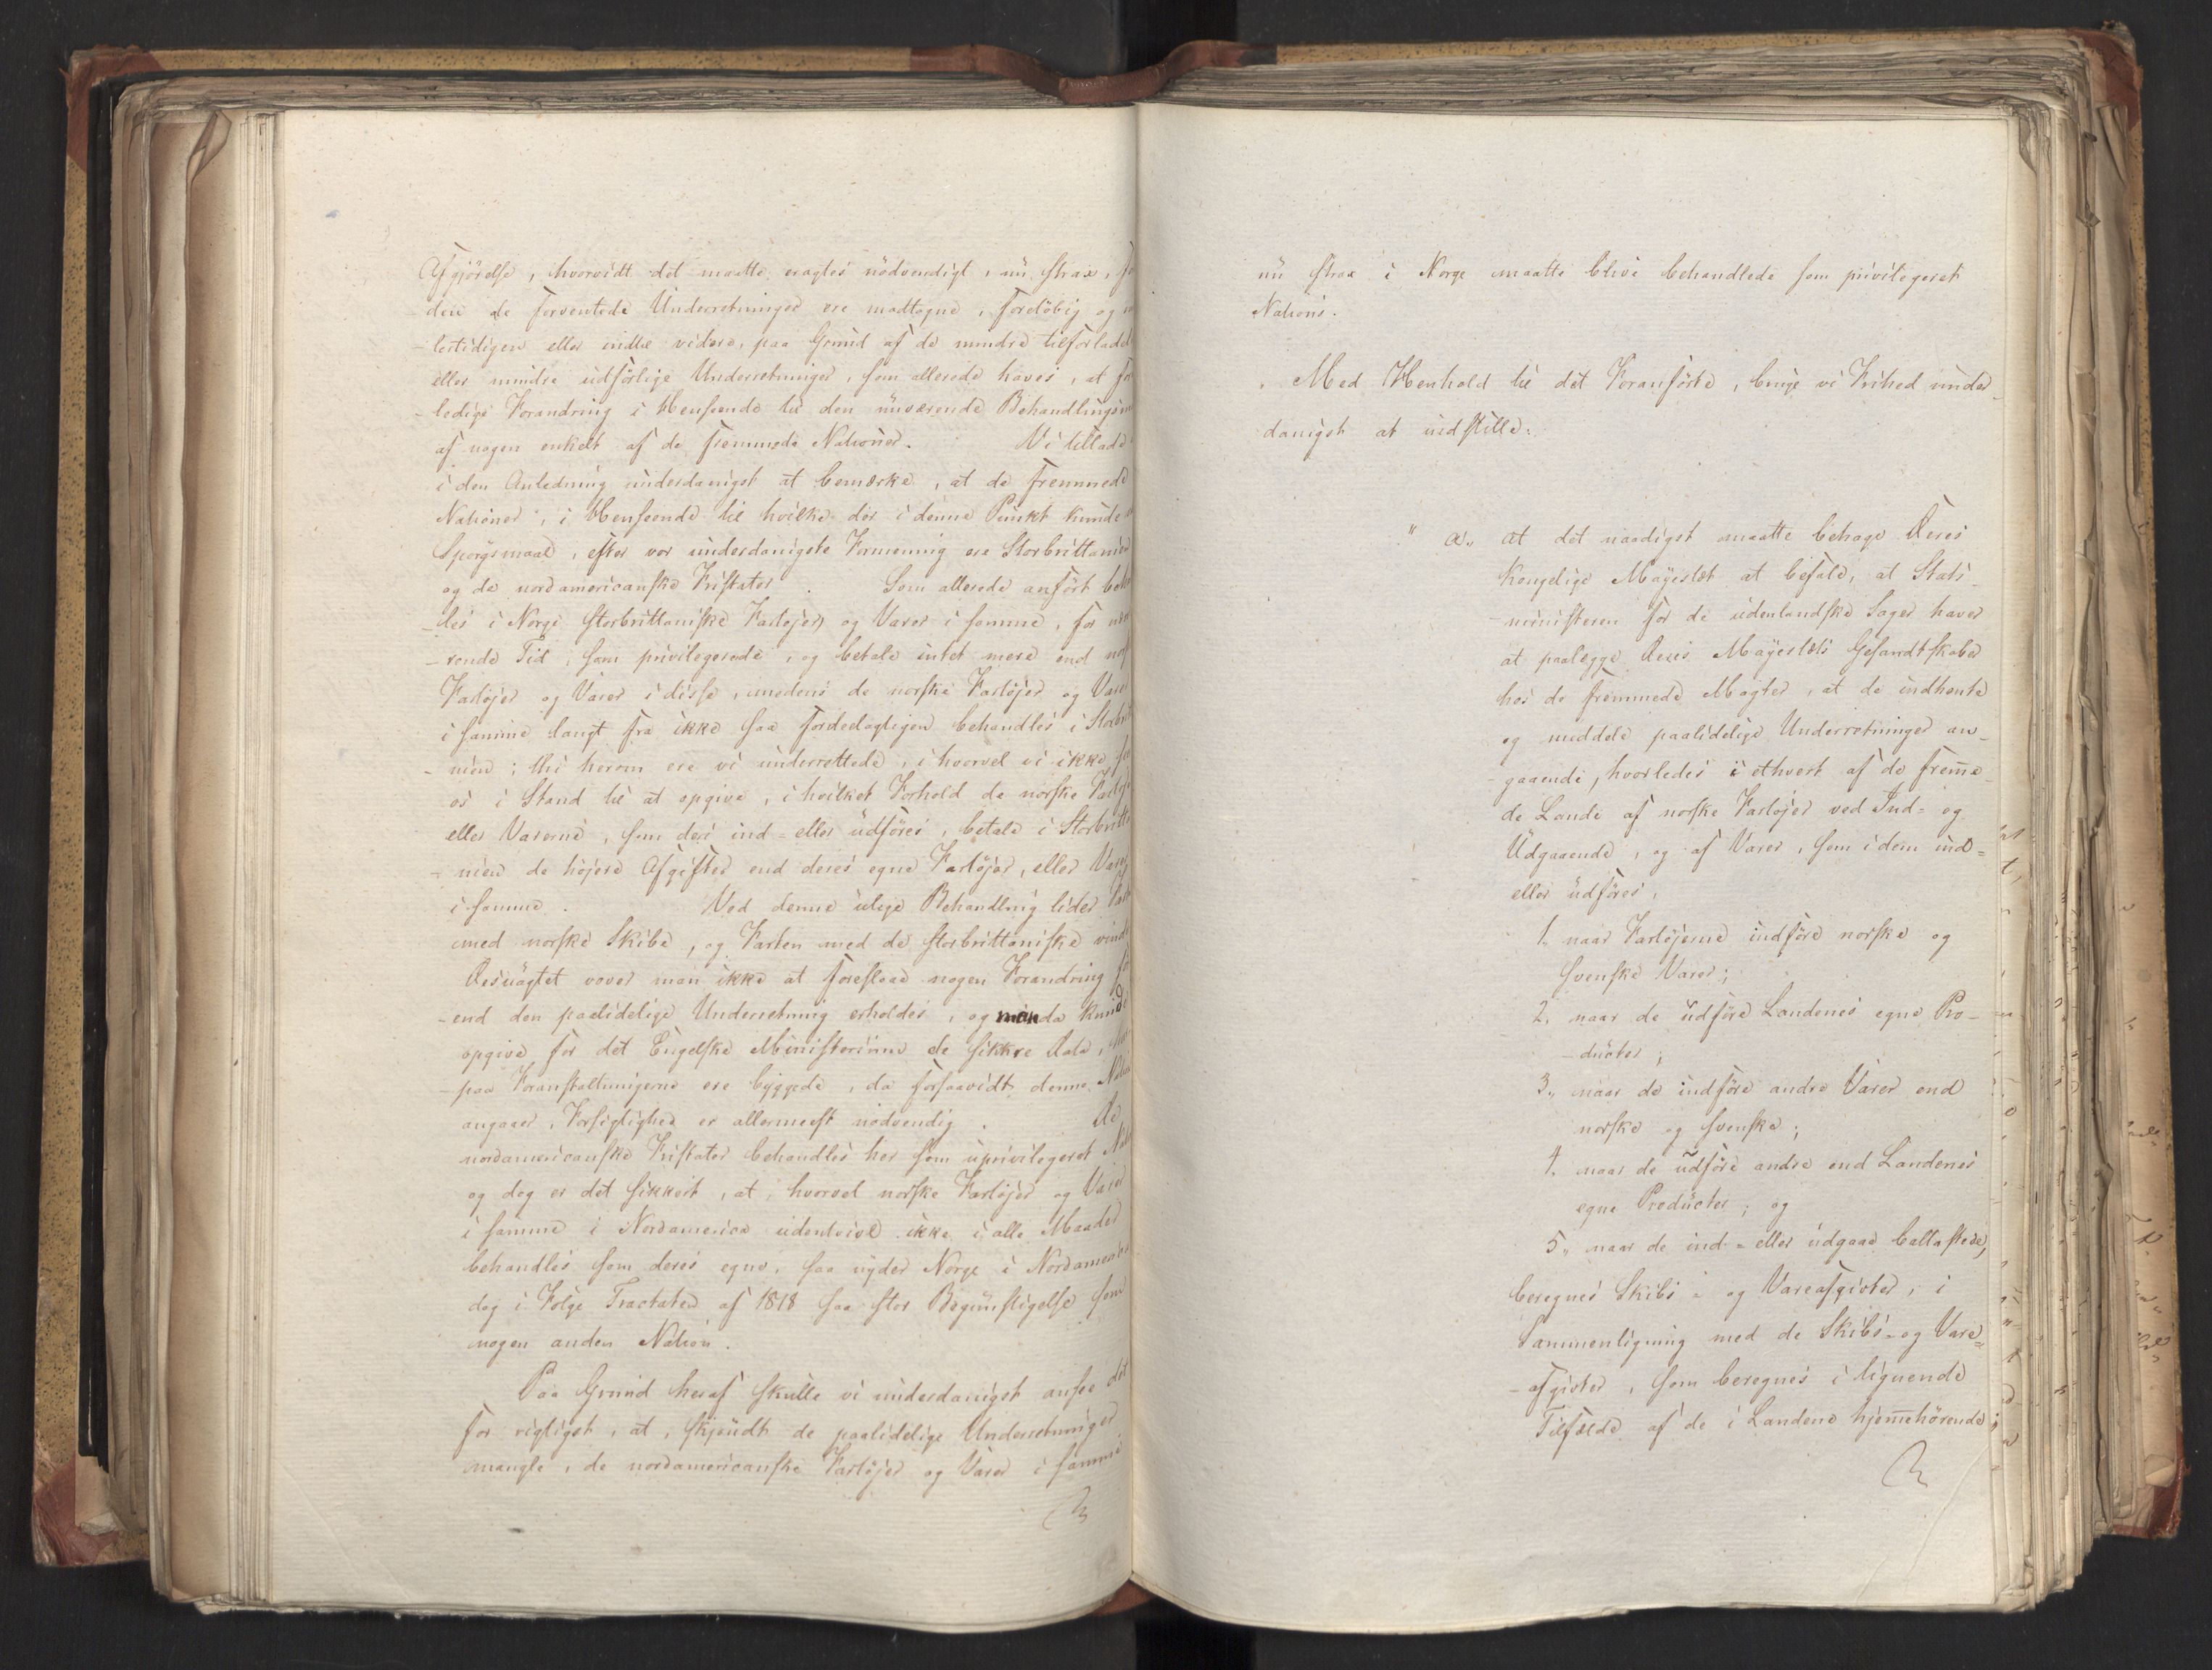 Afgjörelse, hvorvidt det maatte eragtes nödvendigt, nu strax,
den de forventede Underretninger ere modtagne, foreløbig og
lertidigen eller indtil videre, paa Grund af de mindre tilforladel
eller mindre udførlige Underretninger, som allerede haves, at
ledige Forandring i Henseende til den nuværende Behandlings
af nogen enkelt af de fremmede Nationer. Vi tillade
i den Anledning underdanigst at bemærke, at de fremmede
Nationer, i Henseende til hvilke der i denne Punkt kunde
Spörgsmaal, efter vor underdanigste Formening ere Storbrittanien
og de nordamericanske Fristater. Som allerede anfört
les i Norge storbrittaniske Fartöjer og Varer i samme, for
rende Tid, som privilegerede, og betale intet mere end
Fartöjer og Varer i disse, medens de norske Fartöjer og Varer
i samme langt fra ikke saa fordeelagtigen behandles i Storbrit
nien; thi herom ere vi underrettede, i hvorvel vi ikke
os i Stand til at opgive, i hvilket Forhold de norske Fartöj
eller Varerne, som deri ind- eller udföres, betale i Storbritta
nien de höjere Afgifter end deres egne Fartöjer, eller Varer
i samme. Ved denne ulige Behandling lider
med norske Skibe, og Farten med de storbrittaniske
Desuagtet vover man ikke at foreslaae nogen Forandring
end den paalidelige Underretning erholdes, og man da kunde
opgive for det Engelske Ministerium de sikkre Data,
paa Foranstaltningerne ere byggede, da forsaavidt denne
angaaer, Forsigtighed er allermeest nödvendig. De
nordamericanske Fristater behandles her som uprivilegeret
og dog er det sikkert, at, hvorvel norske Fartöjer og Varer
i samme i Nordamerica udentvivl ikke i alle Maader
behandles som deres egne, saa nyder Norge i Nordamerica
dog i Følge Tractaten af 1818 saa stor Begunstigelse som
nogen anden Nation.
Paa Grund heraf skulle vi underdanigst ansee det
for rigtigst, at, skjöndt de paalidelige Underretninger
mangle, de nordamericanske Fartöjer og Varer i samme
nu strax i Norge maatte blive behandlede som privilegeret
Nations.
Med Henhold til det Foranförte, bruge vi Frihed under-
danigst at indstille:
" a., at det naadigst maatte behage Deres
Kongelige Mayestæt at befale, at Stats-
ministeren for de udenlandske Sager haver
at paalægge Deres Mayestæts Gesandtskaber
hos de fremmede Magter, at de indhente
og meddele paalidelige Underretninger an-
gaaende, hvorledes i ethvert af de frem̅e-
de Lande af norske Fartöjer ved Ind- og
Udgaaende, og af Varer, som i dem ind-
eller udföres,
1. naar Fartöjerne indföre norske og
svenske Varer;
2. naar de udföre Landenes egne Pro-
ducter;
3., naar de indföre andre Varer end
norske og svenske;
4. naar de udföre andre end Landenes
egne Producter; og
5., naar de ind- eller udgaae ballastede,
beregnes Skibs- og Vareafgivter, i
Sammenligning med de Skibs- og Vare-
afgivter, som beregnes i lignende
Tilfælde af de i Landene hjem̅ehörende